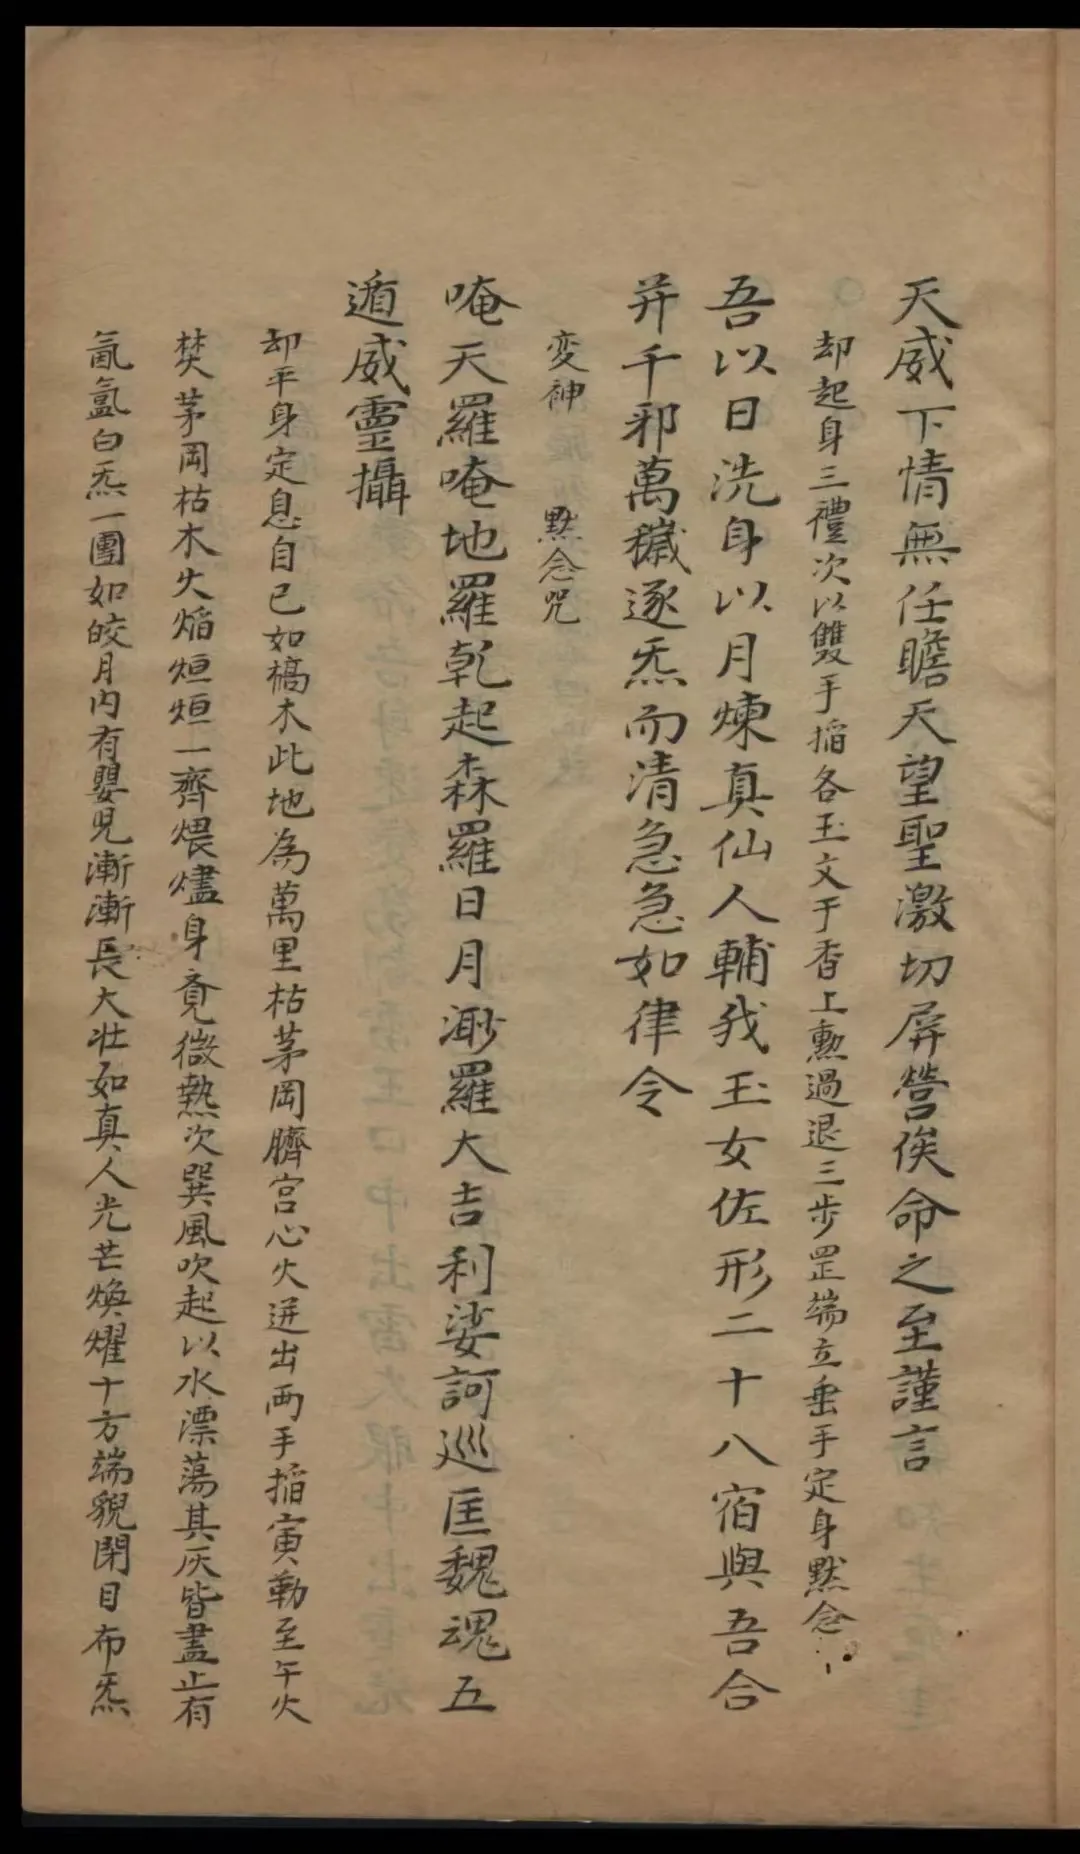 天威下情無任瞻天望聖激切屏營俟命之至謹言
却起身三禮次以雙手掐各玉文于香上勲過退三步罡端立垂手定身默念
吾以日洗身以月煉真仙人輔我玉女佐形二十八宿與吾合
并千邪萬穢逐炁而清急急如律令
变神 默念咒
唵天羅唵地羅乾起森羅日月渺羅大吉利娑訶巡匡魏魂五
遁威靈攝
却平身定息自己如槁木此地為萬里枯茅岡臍宮心火迸出両手掐寅勒至午火
焚茅岡枯木火焰烜烜一齊煨燼身竟微熱次巽風吹起以水漂蕩其灰皆盡止有
氤氳白炁一團如皎月内有嬰児漸漸長大壮如真人光芒煥耀十方端貌閉目布炁